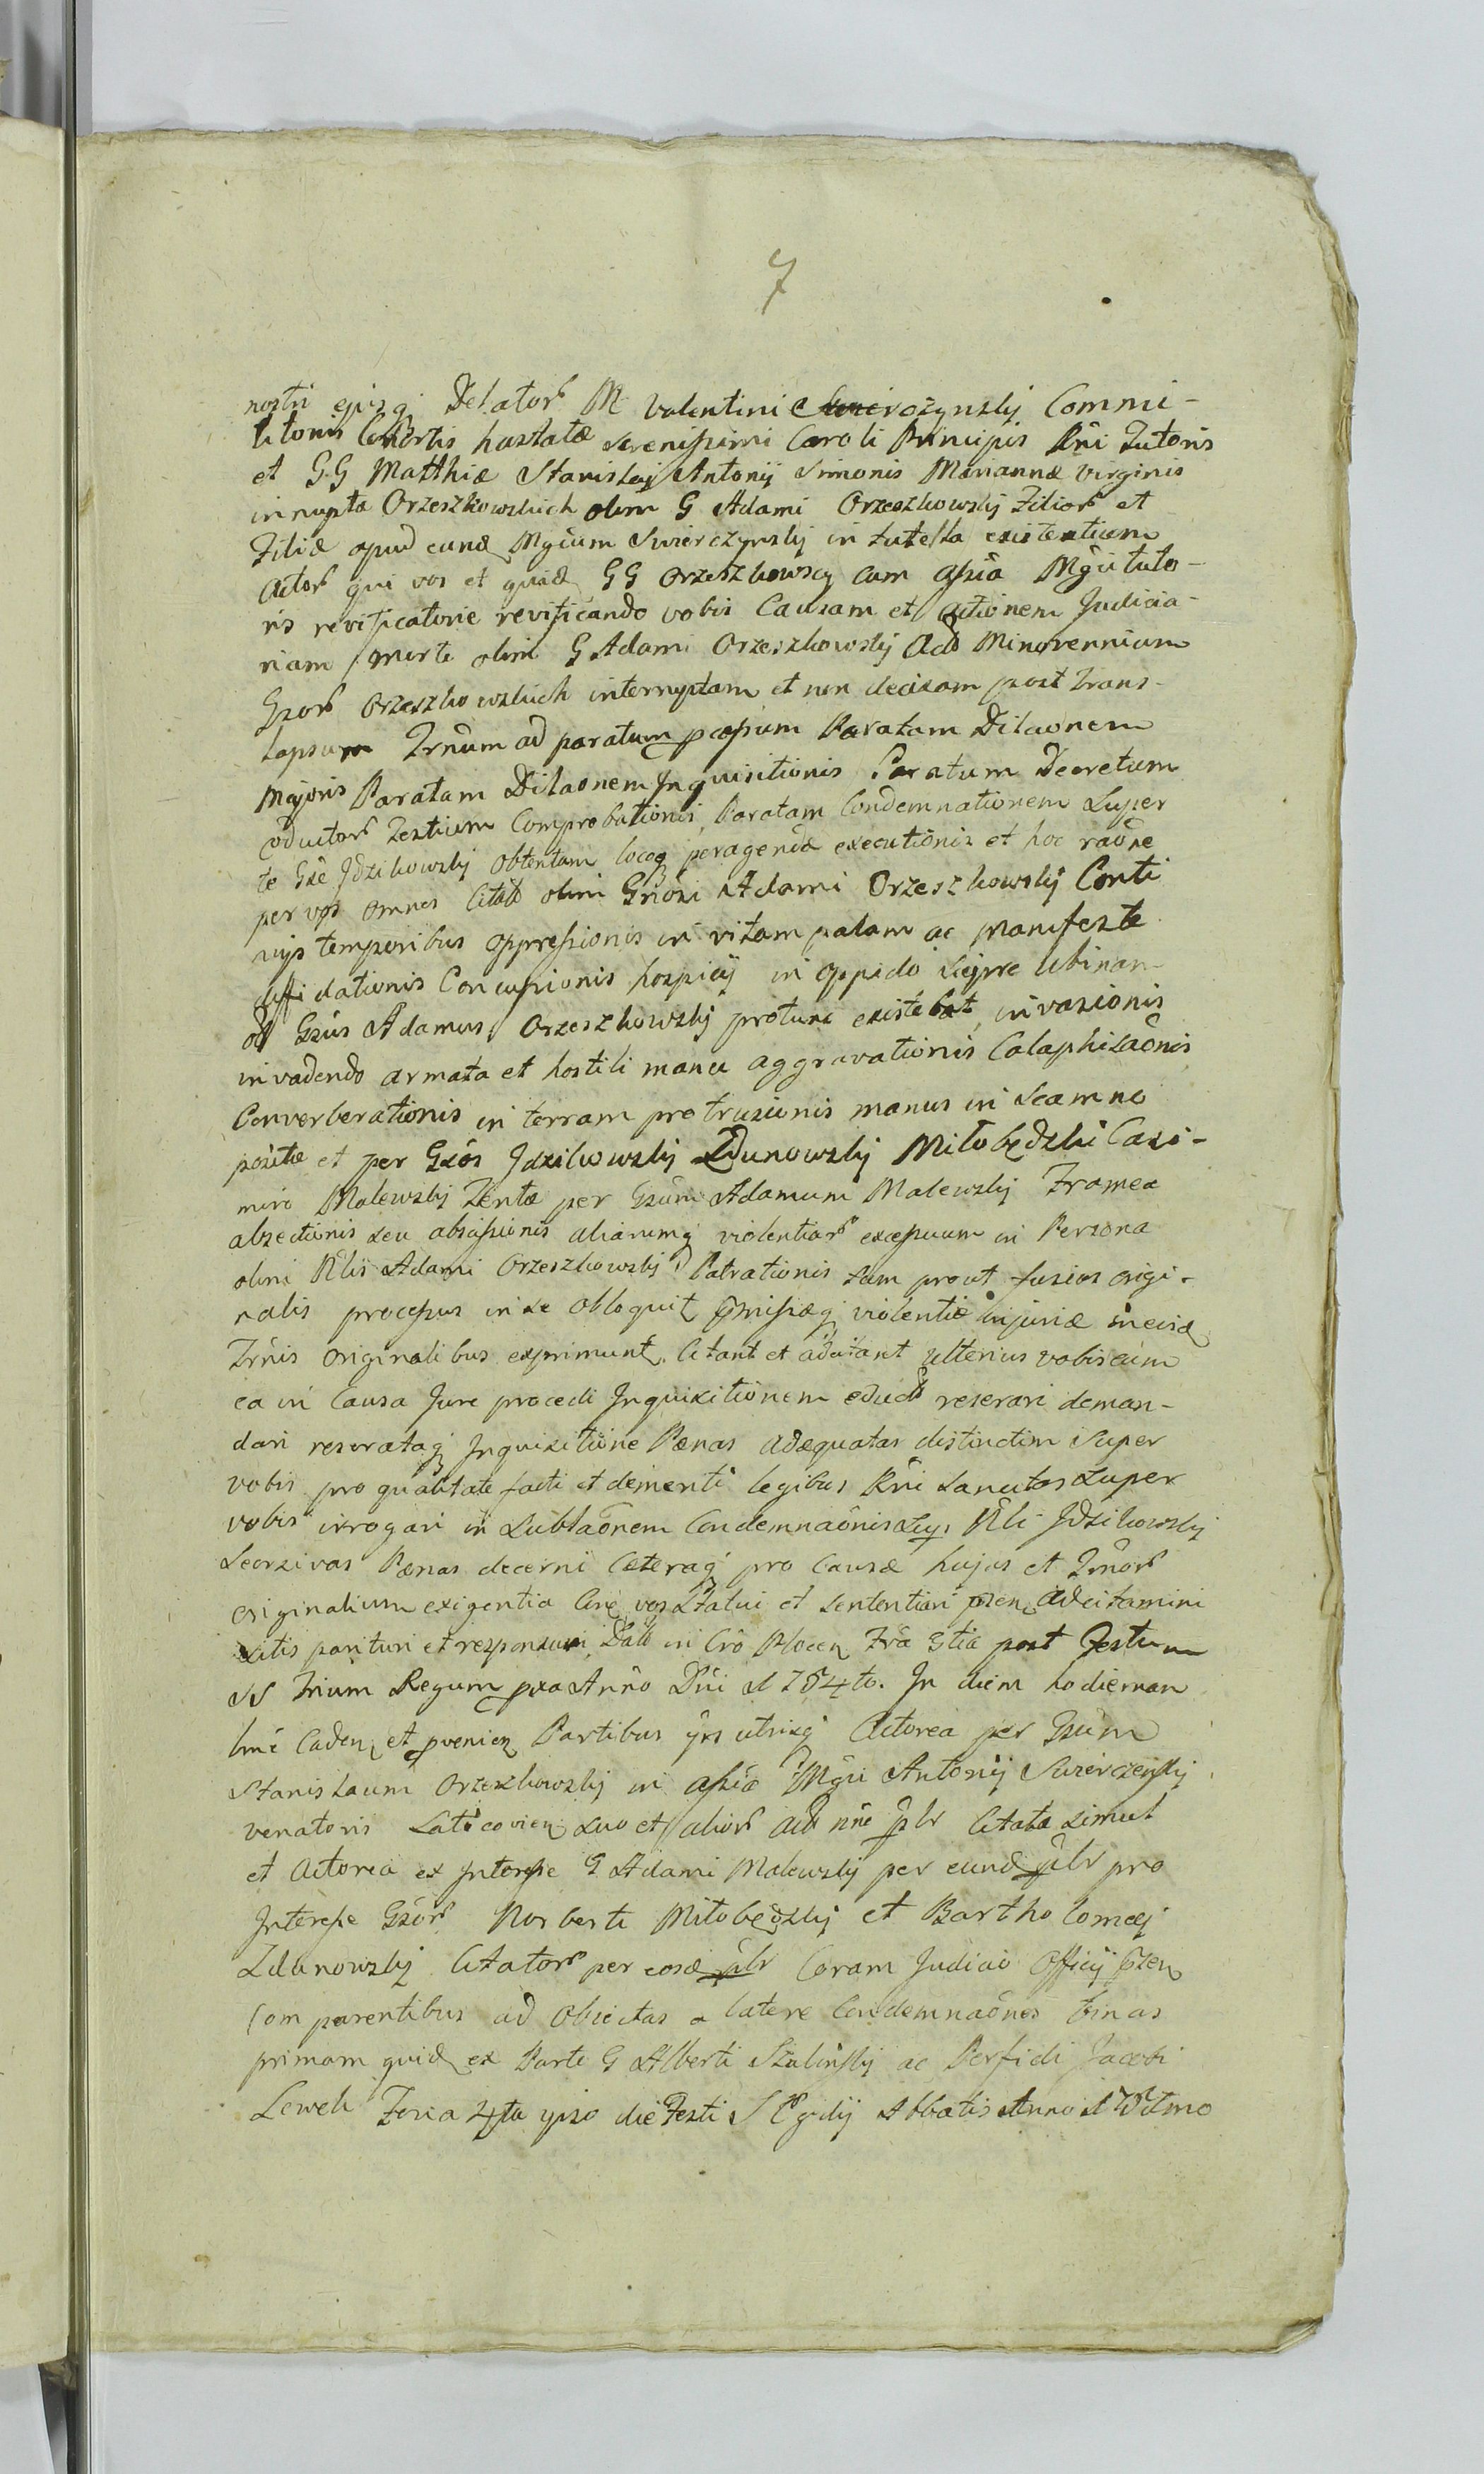 7
nostri ejusq Delator M Valentini Swierczynskij Commi-
litonis Cohortis hastatæ serenissimi Caroli Principis Rni Tutoris
et G.G Matthiæ Stanislaj Antonij Simonis Mariannæ Virginis
innuptæ Orzeszkowskich olim G Adami Orzeszkowskij Filior et
Filiæ apud eund Mgcum Swierczynskij in tutella existentium
Actor qui vos et quid GG Orzeszkowscy cum assia Mgci tuto-
ris revificatorie revificando vobis Causam et actionem Judicia-
riam morte olim G Adami Orzeszkowskij ad Minorennium
Gsor Orzeszkowskich interruptam et non decisam post Trans-
lapsum Trnum ad paratum pcessum Paratam Dilaonem
Majoris Paratam Dilaonem Inquisitionis Paratum Decretum
oductor Testium Comprobationis, Paratam Condemnationem Super
te Gse Jdzikowskij obtentam locoq peragendæ executionis et hoc raone
per vos omnes Citato olim Gnosi Adami Orzeszkowskij Conti
nijs temporibus oppressionis in vitam palam ac manifeste
diffidationis Concussionis hospicij in oppido Sijpre ubinam
ol Gsus Adamus Orzeszkowskij protunc existebat, invasionis
invadendo armata et hostili manu aggravationis Calaphisaonis
Converberationis in terram protrusionis manus in scamno
positæ et per Gsos Jdzikowskij Zdunowskij Miłobędzki Casi-
miro Malewskij Tentæ per Gsum Adamum Malewskij Framea
absectionis seu abscissionis aliarumq violentiar excessuum in Persona
olim Nlis Adami Orzeszkowskij Patrationis tum prout fusius origi-
nalis processus in se obloquit pmissæq violentiæ injuriæ in eisd
Trnis originalibus exprimunt. Citant et adcitant ulterius vobiscum
ea in Causa Jure procedi Inquisitionem educt reserari deman-
dari reserataq Inquisitione Pænas adæquatas distinctim Super
vobis pro qualitate facti et demeriti legibus Rni sancitas Super
vobis irrogari in Sublaonem Condemnaonis Sup Nli Jdzikowskij
Seorsivas Pænas decerni Cæteraq pro Causæ hujus et Trnor
originalium exigentia Circ vos Statui et sententiari psen adcitamini
sitis parituri et responsuri Datt in Cro Plocen Fra 3tia post Festum
SS Trium Regum pxa Anno Dni 1754to. In diem hodiernam
lme Caden et pvenien Partibus ijs utrisq Actorea per Gsum
Stanislaum Orzeszkowskij in assia Mgci Antonij Swierczynskij
venatoris Laticovien suo et alior act nne plr Citata simul
et Actorea ex Interesse G Adami Malewskij per eund plr pro
Interesse Gsor Norberti Miłobędzkij et Bartholomæj
Zdunowskij Citator per eosd plr Coram Judicio Officij psen
Comparentibus ad Obiectas a latere Condemnaones binas
primam quid ex Parte G Alberti Stalinskij ac Perfidi Jacobi
Lewek Feria 4ta ipso die Festi S Egidij Abbatis Anno